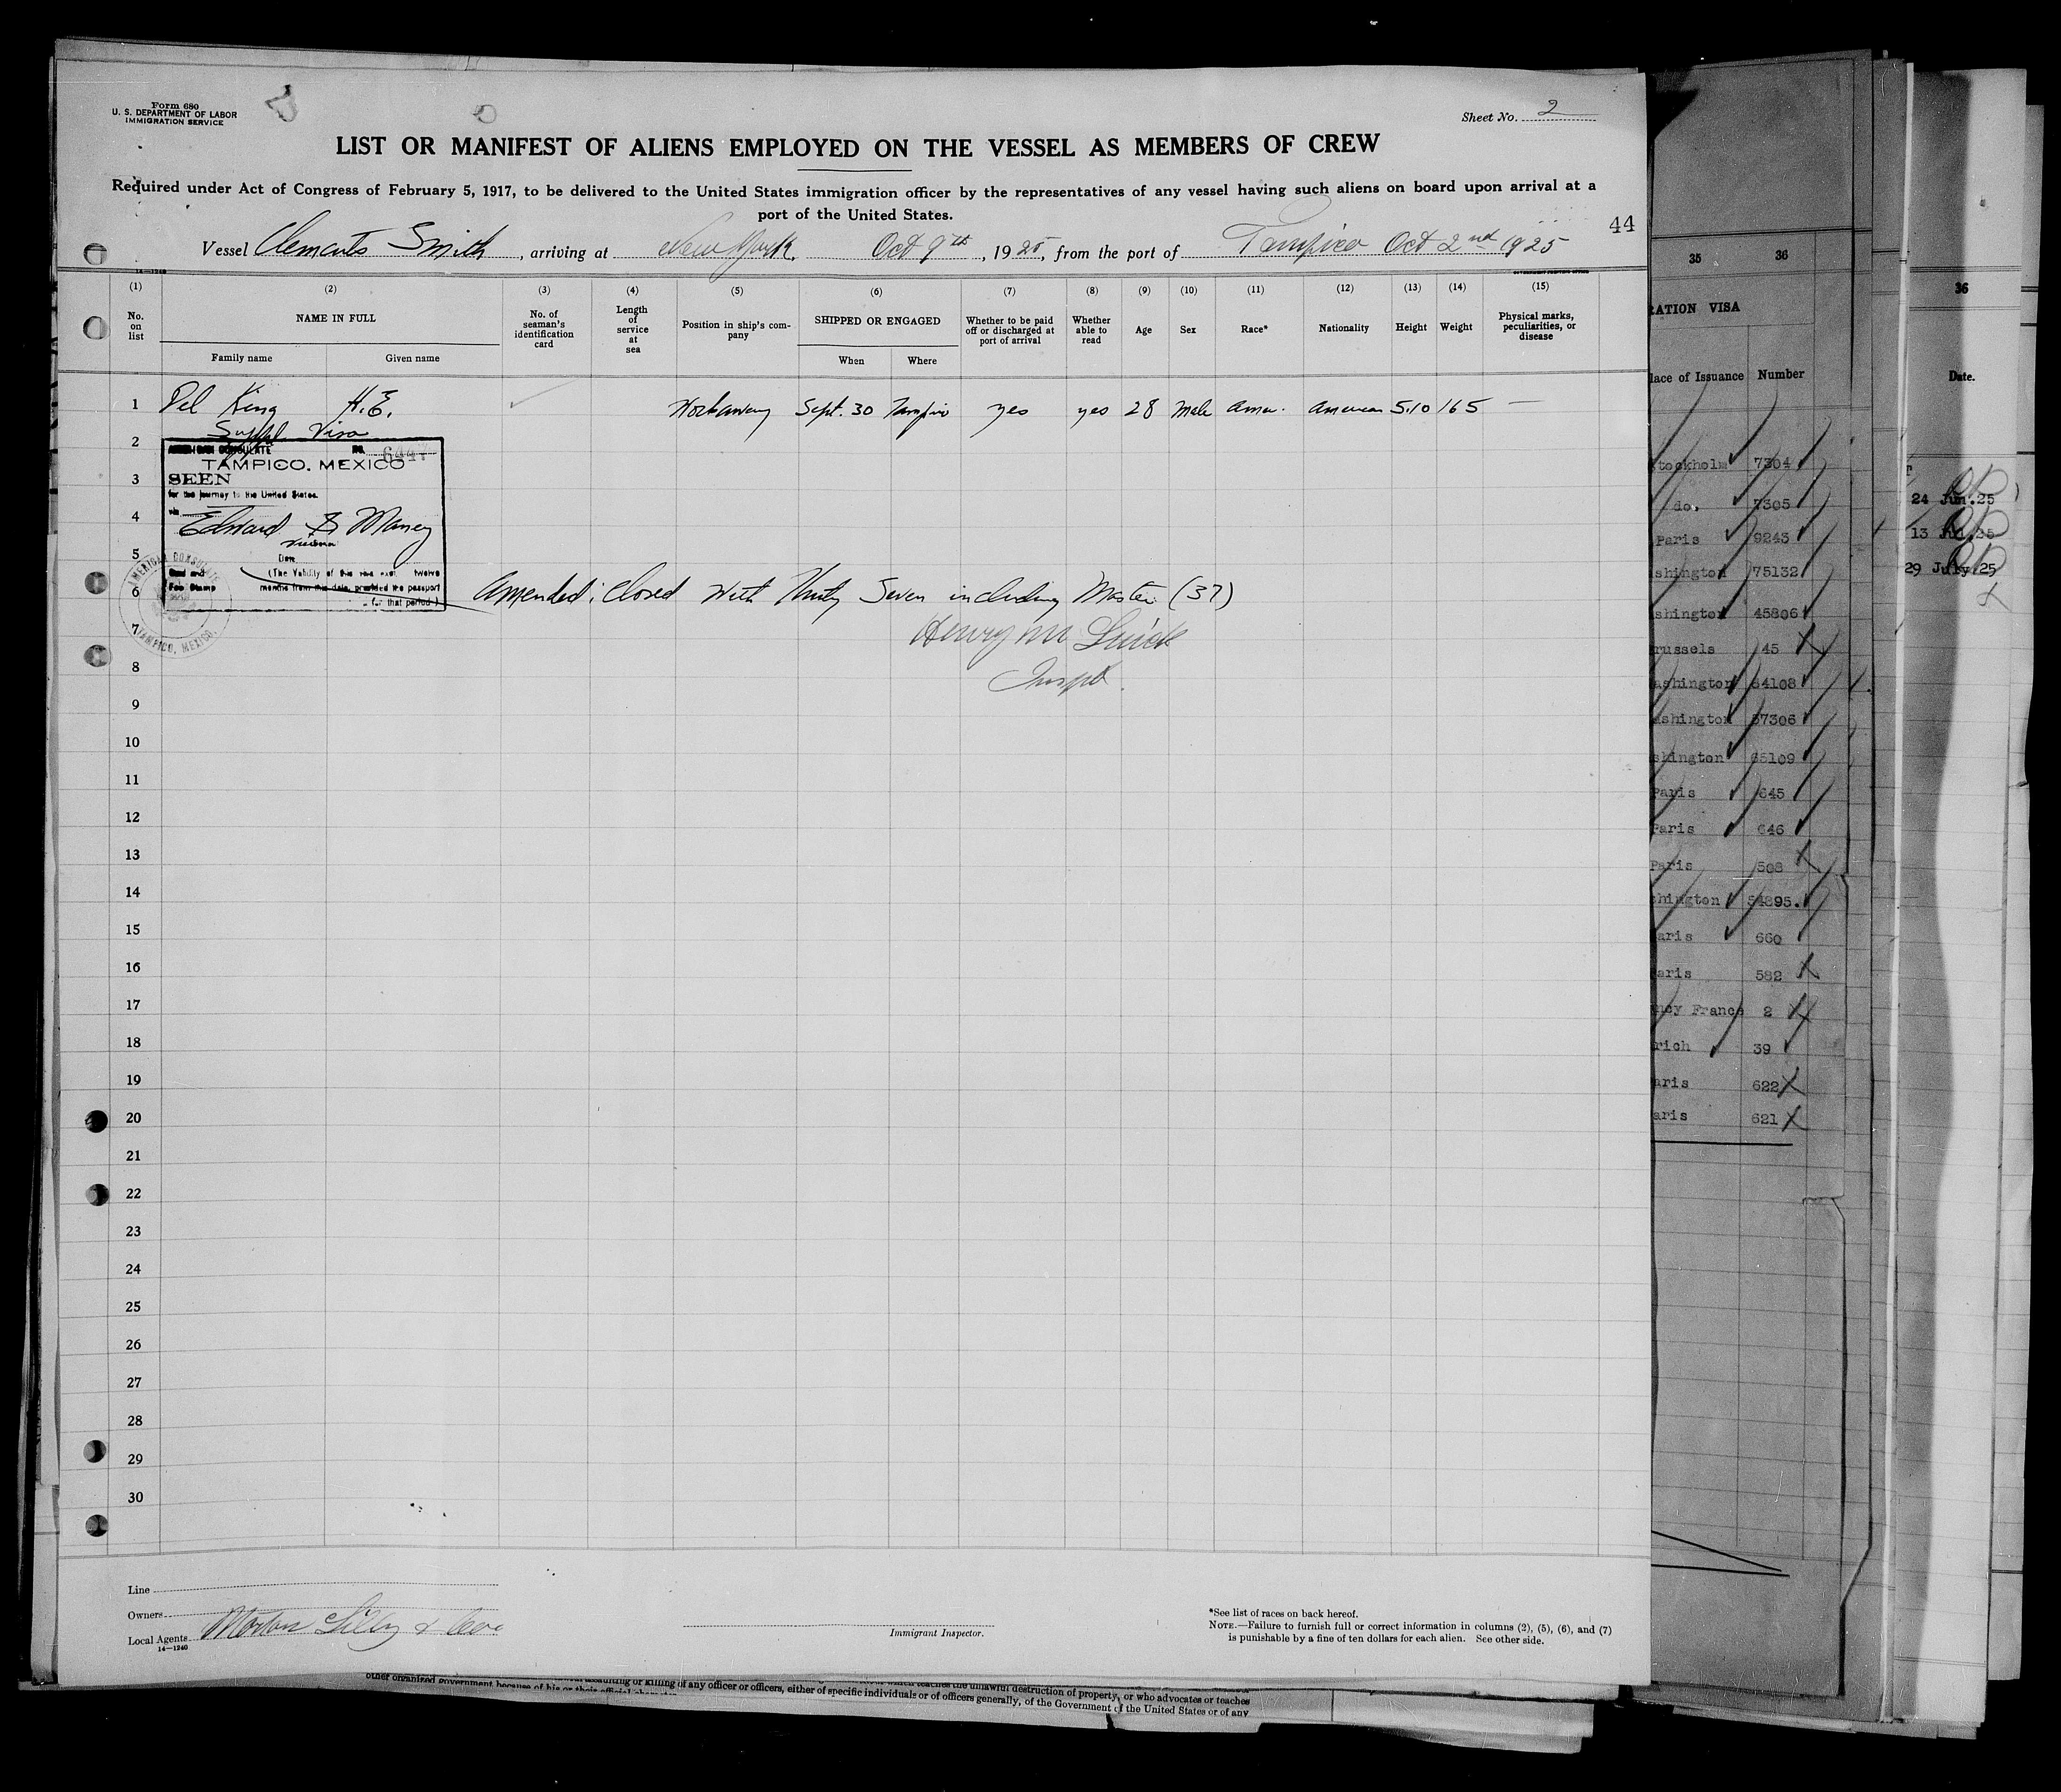 Form 680
U. S. DEPARTMENT OF LABOR
IMMIGRATION SERVICE
Sheet No. 2
LIST OR MANIFEST OF ALIENS EMPLOYED ON THE VESSEL AS MEMBERS OF CREW
Required under Act of Congress of February 5, 1917, to be delivered to the United States immigration officer by the representatives of any vessel having such aliens on board upon arrival at a
port of the United States.
44
Vessel Clements Smith, arriving at New York, Oct 9th, 1925, from the port of Tampico Oct 2nd 1925
14—1240
(1) (2) (3) (4) (5) (6) (7) (8) (9) (10) (11) (12) (13) (14) (15)
No. on list
NAME IN FULL
Family name Given name
No. of seaman's identification card
Length of service at sea
Position in ship's company
SHIPPED OR ENGAGED
When Where
Whether to be paid off or discharged at port of arrival
Whether able to read
Age
Sex
Race*
Nationality
Height
Weight
Physical marks, peculiarities, or disease
1 Del King H.E. Workaway Sept. 30 Tampico yes yes 28 male Amer. American 5.10 165 —
Suppl. Visa
2
AMERICAN CONSULATE No. 6447
TAMPICO, MEXICO
3
SEEN
for the journey to the United States.
4
via
Edward S Maney
5
Date
(The Validity of this visa exp. twelve
months from this date, provided the passport
for that period)
Seal and
Fee Stamp
AMERICAN CONSULATE
TAMPICO, MEXICO.
6
Amended; Closed with Thirty Seven including Master (37)
7
Henry M
8
Inspt.
9
10
11
12
13
14
15
16
17
18
19
20
21
22
23
24
25
26
27
28
29
30
Line
Owners
Local Agents Morton Lilly & Co.
14—1240
Immigrant Inspector.
*See list of races on back hereof.
NOTE.—Failure to furnish full or correct information in columns (2), (5), (6), and (7)
is punishable by a fine of ten dollars for each alien. See other side.
35 36
RATION VISA
lace of Issuance Number
tockholm 7304
do. 7305
Paris 9243
shington 75132
shington 45806
russels 45
ashington 84108
ashington 37306
shington 65109
Paris 645
Paris 646
Paris 508
hington 54895.
aris 660
aris 582
ncy France 2
rich 39
aris 622
aris 621
36
Date.
24 Jun.25
13 Jul.25
29 July.25
assaulting or killing of any officer or officers, either of specific individuals or of officers generally, of the Government of the United States or of any
which teaches the unlawful destruction of property, or who advocates or teaches
other organized government because of his or their official character